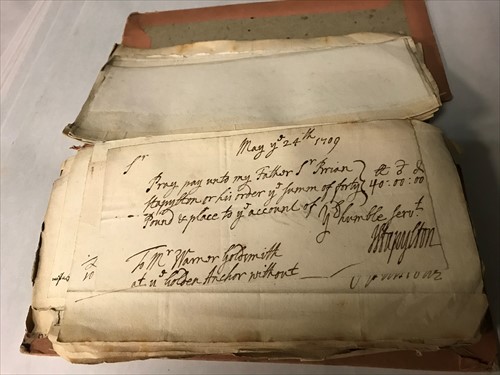 May yᵉ 24ᵗʰ 1709
Sʳ
Pray pay unto my Father Sʳ Brian
Stapylton or his order yᵉ summ of forty
Pound & place to yᵉ account of
40:00:00
Yʳ humble Servᵗ
JStapylton
To Mʳ Warner Goldsmith
at yᵉ Golden Anchor without
10